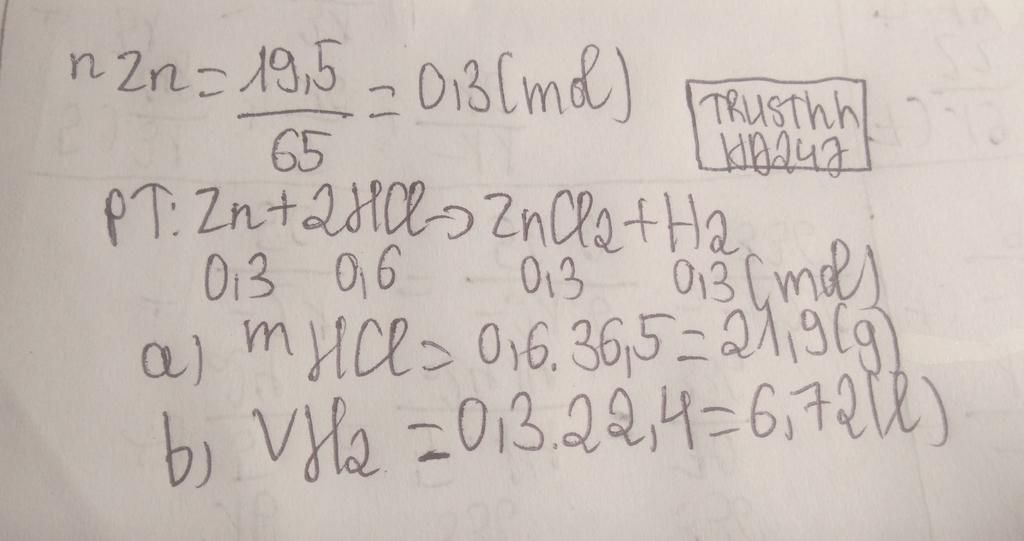 nZn = 19,5/65 = 0,3 (mol)
TRUSThh
HD247
PT: Zn + 2HCl → ZnCl2 + H2
0,3 0,6 0,3 0,3 (mol)
a) mHCl = 0,6.36,5 = 21,9 (g)
b) VH2 = 0,3.22,4 = 6,72 (l)